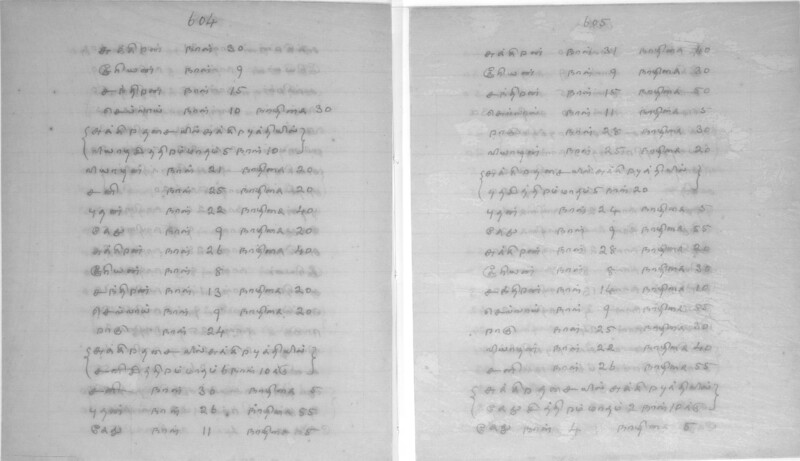 604
சுக்கிரன் நாள் 30
சூரியன் நாள் 9
சந்திரன் நாள் 15
செவ்வாய் நாள் 10 நாழிகை 30
{சுக்கிரதசையில் சுக்கிரபுத்தியில்
வியாழந்திரம் மாதம் 5 நாள் 10}
வியாழன் நாள் 21 நாழிகை 20
சனி நாள் 25 நாழிகை 20
புதன் நாள் 22 நாழிகை 40
கேது நாள் 9 நாழிகை 20
சுக்கிரன் நாள் 26 நாழிகை 40
சூரியன் நாள் 8
சந்திரன் நாள் 13 நாழிகை 20
செவ்வாய் நாள் 9 நாழிகை 20
ராகு நாள் 24
{சுக்கிரதசையில் சுக்கிரபுத்தியில்
மாதம் 6 நாள் 10}
சனி நாள் 30 நாழிகை 5
புதன் நாள் 26 நாழிகை 55
கேது நாள் 11 நாழிகை 5
605
சுக்கிரன் நாள் 31 நாழிகை 40
சூரியன் நாள் 9 நாழிகை 30
சந்திரன் நாள் 15 நாழிகை 50
செவ்வாய் நாள் 11 நாழிகை 5
ராகு நாள் 28 நாழிகை 30
வியாழன் நாள் 25 நாழிகை 20
{சுக்கிரதசையில் சுக்கிரபுத்தியில்
மாதம் 5 நாள் 20}
புதன் நாள் 24 நாழிகை 5
கேது நாள் 9 நாழிகை 55
சுக்கிரன் நாள் 28 நாழிகை 20
சூரியன் நாள் 8 நாழிகை 30
சந்திரன் நாள் 14 நாழிகை 10
செவ்வாய் நாள் 9 நாழிகை 55
ராகு நாள் 25 நாழிகை 30
வியாழன் நாள் 22 நாழிகை 40
சனி நாள் 26 நாழிகை 55
{சுக்கிரதசையில் சுக்கிரபுத்தியில்
மாதம் 2 நாள் 10}
கேது நாள் 4 நாழிகை 5